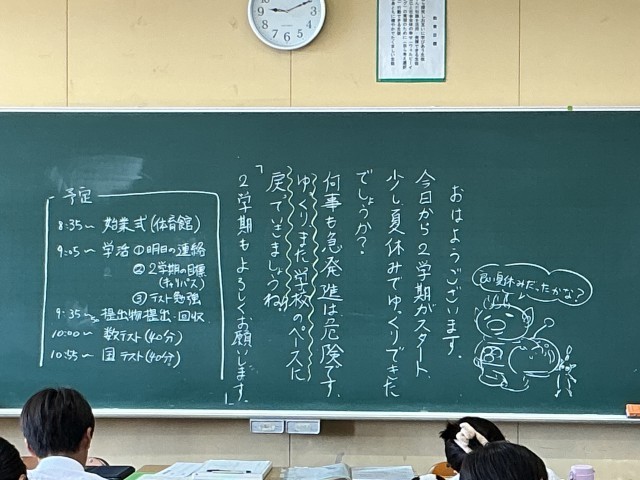 おはようございます。
今日から2学期がスタート。
少し夏休みでゆっくりできた
でしょうか?
何事も急発進は危険です。
ゆっくりまた学校のペースに
戻っていきましょうね
2学期もよろしくお願いします。
良い夏休みだったかな?
予定
8:35~ 始業式(体育館)
9:05~ 学活 ①明日の連絡
②2学期の目標
(キャリパス)
③テスト勉強
9:35~ 提出物提出・回収
10:00~ 数テスト(40分)
10:55~ 国テスト(40分)
12
1
2
3
4
5
6
7
8
9
10